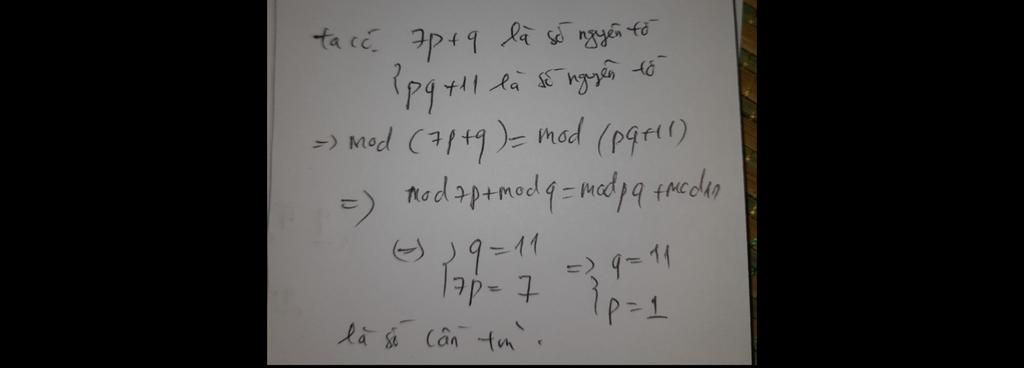 ta có. 7p+q là số nguyên tố
{pq+11 là số nguyên tố
=> mod (7p+q) = mod (pq+11)
=> mod 7p + mod q = mod pq + mod 11
(=) { q = 11 => { q = 11
{ 7p = 7 { p = 1
là số cần tìm.